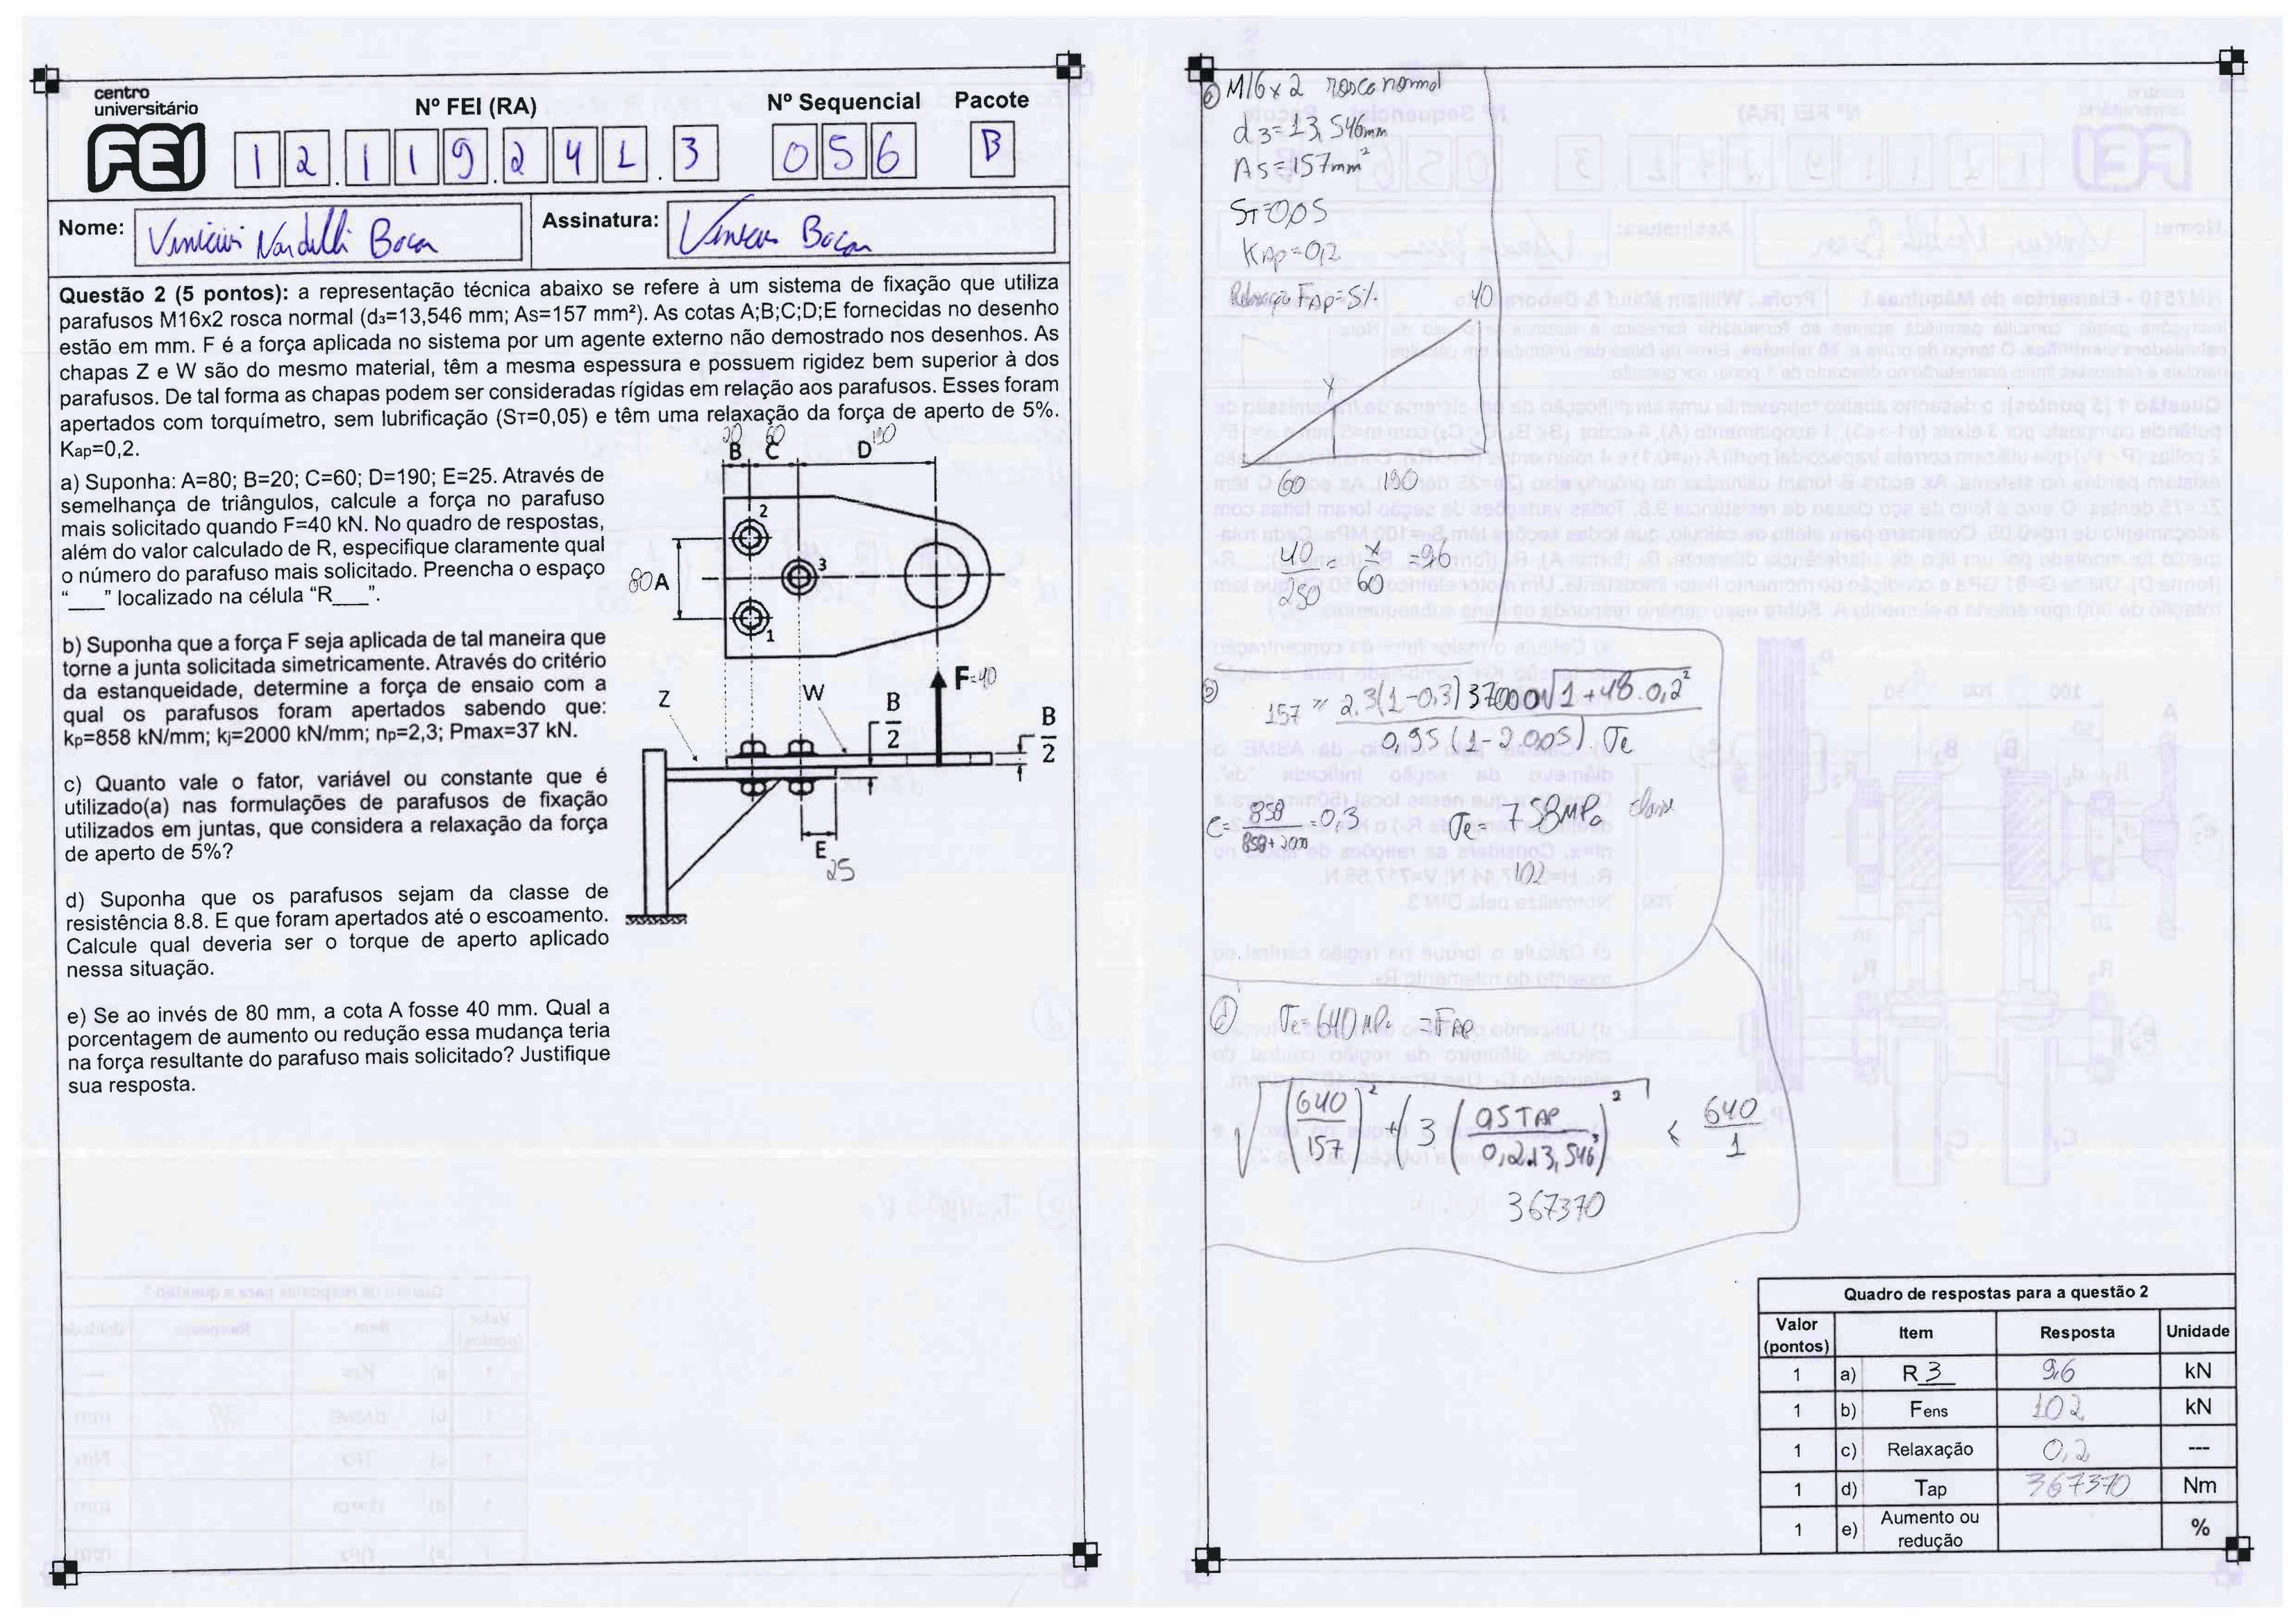 centro
universitário
FEI
Nº FEI (RA)
Nº Sequencial
Pacote
12.119.241.3
056
B
Nome:
Assinatura:
Questão 2 (5 pontos): a representação técnica abaixo se refere à um sistema de fixação que utiliza
parafusos M16x2 rosca normal (d₃=13,546 mm; As=157 mm²). As cotas A;B;C;D;E fornecidas no desenho
estão em mm. F é a força aplicada no sistema por um agente externo não demostrado nos desenhos. As
chapas Z e W são do mesmo material, têm a mesma espessura e possuem rigidez bem superior à dos
parafusos. De tal forma as chapas podem ser consideradas rígidas em relação aos parafusos. Esses foram
apertados com torquímetro, sem lubrificação (Sᴛ=0,05) e têm uma relaxação da força de aperto de 5%.
Kap=0,2.
a) Suponha: A=80; B=20; C=60; D=190; E=25. Através de
semelhança de triângulos, calcule a força no parafuso
mais solicitado quando F=40 kN. No quadro de respostas,
além do valor calculado de R, especifique claramente qual
o número do parafuso mais solicitado. Preencha o espaço
"___" localizado na célula "R___".
b) Suponha que a força F seja aplicada de tal maneira que
torne a junta solicitada simetricamente. Através do critério
da estanqueidade, determine a força de ensaio com a
qual os parafusos foram apertados sabendo que:
kp=858 kN/mm; kj=2000 kN/mm; np=2,3; Pmax=37 kN.
c) Quanto vale o fator, variável ou constante que é
utilizado(a) nas formulações de parafusos de fixação
utilizados em juntas, que considera a relaxação da força
de aperto de 5%?
d) Suponha que os parafusos sejam da classe de
resistência 8.8. E que foram apertados até o escoamento.
Calcule qual deveria ser o torque de aperto aplicado
nessa situação.
e) Se ao invés de 80 mm, a cota A fosse 40 mm. Qual a
porcentagem de aumento ou redução essa mudança teria
na força resultante do parafuso mais solicitado? Justifique
sua resposta.
20 60 190
B C D
2
3
1
80 A
F=40
Z
W
B/2
B/2
E
25
M16x2 rosca normal
d3=13,546mm
As=157mm²
ST=0,05
KAp=0,2
Relaxação FAp=5%
40
x
60 190
40/250 = x/60 = 9,6
b
157 = 2.3(1-0,3) 37000 √1+48.0,2² / 0,95 (1-2.0,05). σe
C= 858/858+2000 =0,3
σe= 758MPa classe
102
d
σe=640MPa =FAP
√(640/157)² + (3 (0,5TAP/0,2.13,546³)² ≤ 640/1
367370
Quadro de respostas para a questão 2
Valor (pontos) Item Resposta Unidade
1 a) R 3 9,6 kN
1 b) Fens 102 kN
1 c) Relaxação 0,2 ---
1 d) Tap 367370 Nm
1 e) Aumento ou redução %